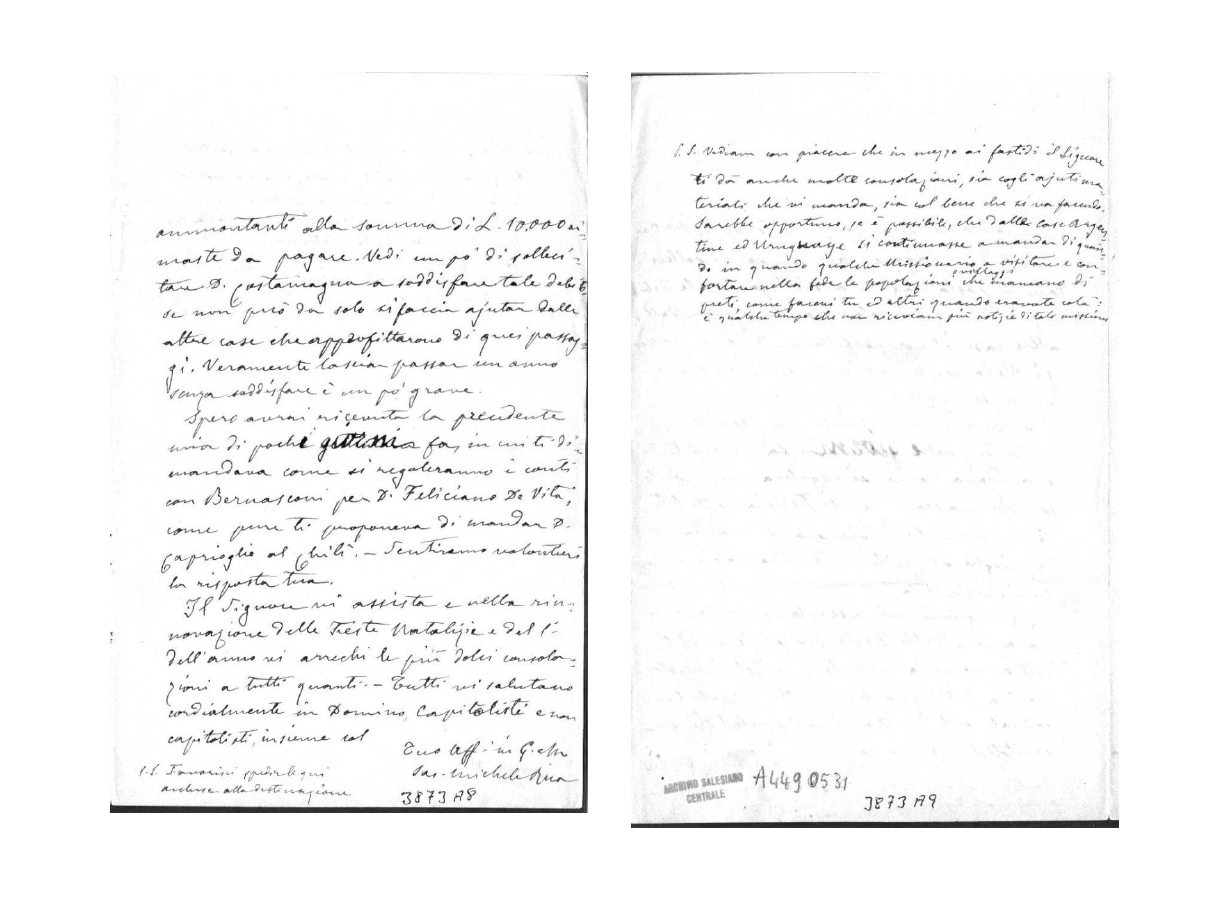 ammontanti alla somma di L. 10,000 ri-
maste da pagare. Vedi un po' di solleci-
tare D. Costamagna a soddisfare tale debito
se non può da solo si faccia ajutar dalle
altre case che approfittarono di quei passag-
gi. Veramente lasciar passar un anno
senza soddisfare è un po' grave.
Spero avrai ricevuta la precedente
mia di pochi fa, in cui ti di-
mandava come si regoleranno i conti
con Bernasconi per D. Feliciano De Vita,
come pure ti proponeva di mandar D.
Caprioglio al Chilì. - Sentiremo volontieri
la risposta tua.
Il Signore vi assista e nella rin-
novazione delle Feste Natalizie e del 1°
dell'anno vi arrechi le più dolci consola-
zioni a tutti quanti. - Tutti vi salutano
cordialmente in Domino, Capitolisti e non
capitolisti, insieme col
Tuo Aff. in G. e M.
Sac. Michele Rua
P.S. Favorisci spedir le qui
anchiuse alla destinazione
3873 A8
P.S. Vediam con piacere che in mezzo ai fastidi il Signore
ti dà anche molte consolazioni, sia cogli ajuti ma-
teriali che vi manda, sia col bene che si va facendo.
Sarebbe opportuno, se è possibile, che dalle case Argen-
tine ed Uruguaye si continuasse a mandar di quan-
do in quando qualche Missionario a visitare e con-
fortare nella fede le popolazioni e villaggi che mancano di
preti, come facevi tu ed altri quando eravate colà:
è qualche tempo che non riceviam più notizie di tale missioni
ARCHIVIO SALESIANO
CENTRALE
A4490531
3873 A9